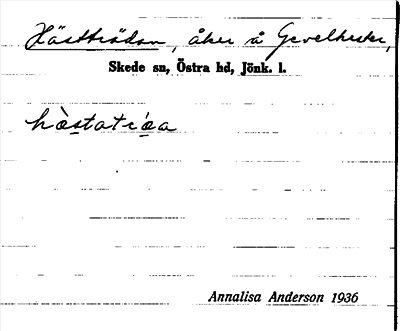 Hästträdan, åker å Gevelhester,
Skede sn, Östra hd, Jönk. l.
hæ̀statrǽa
Annalisa Anderson 1936